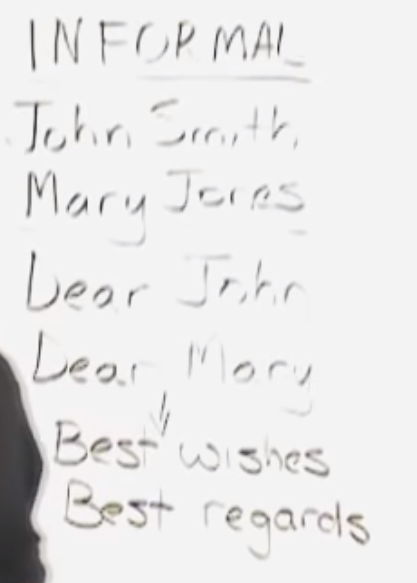 INFORMAL
John Smith,
Mary Jones
Dear John
Dear Mary
Best wishes
Best regards